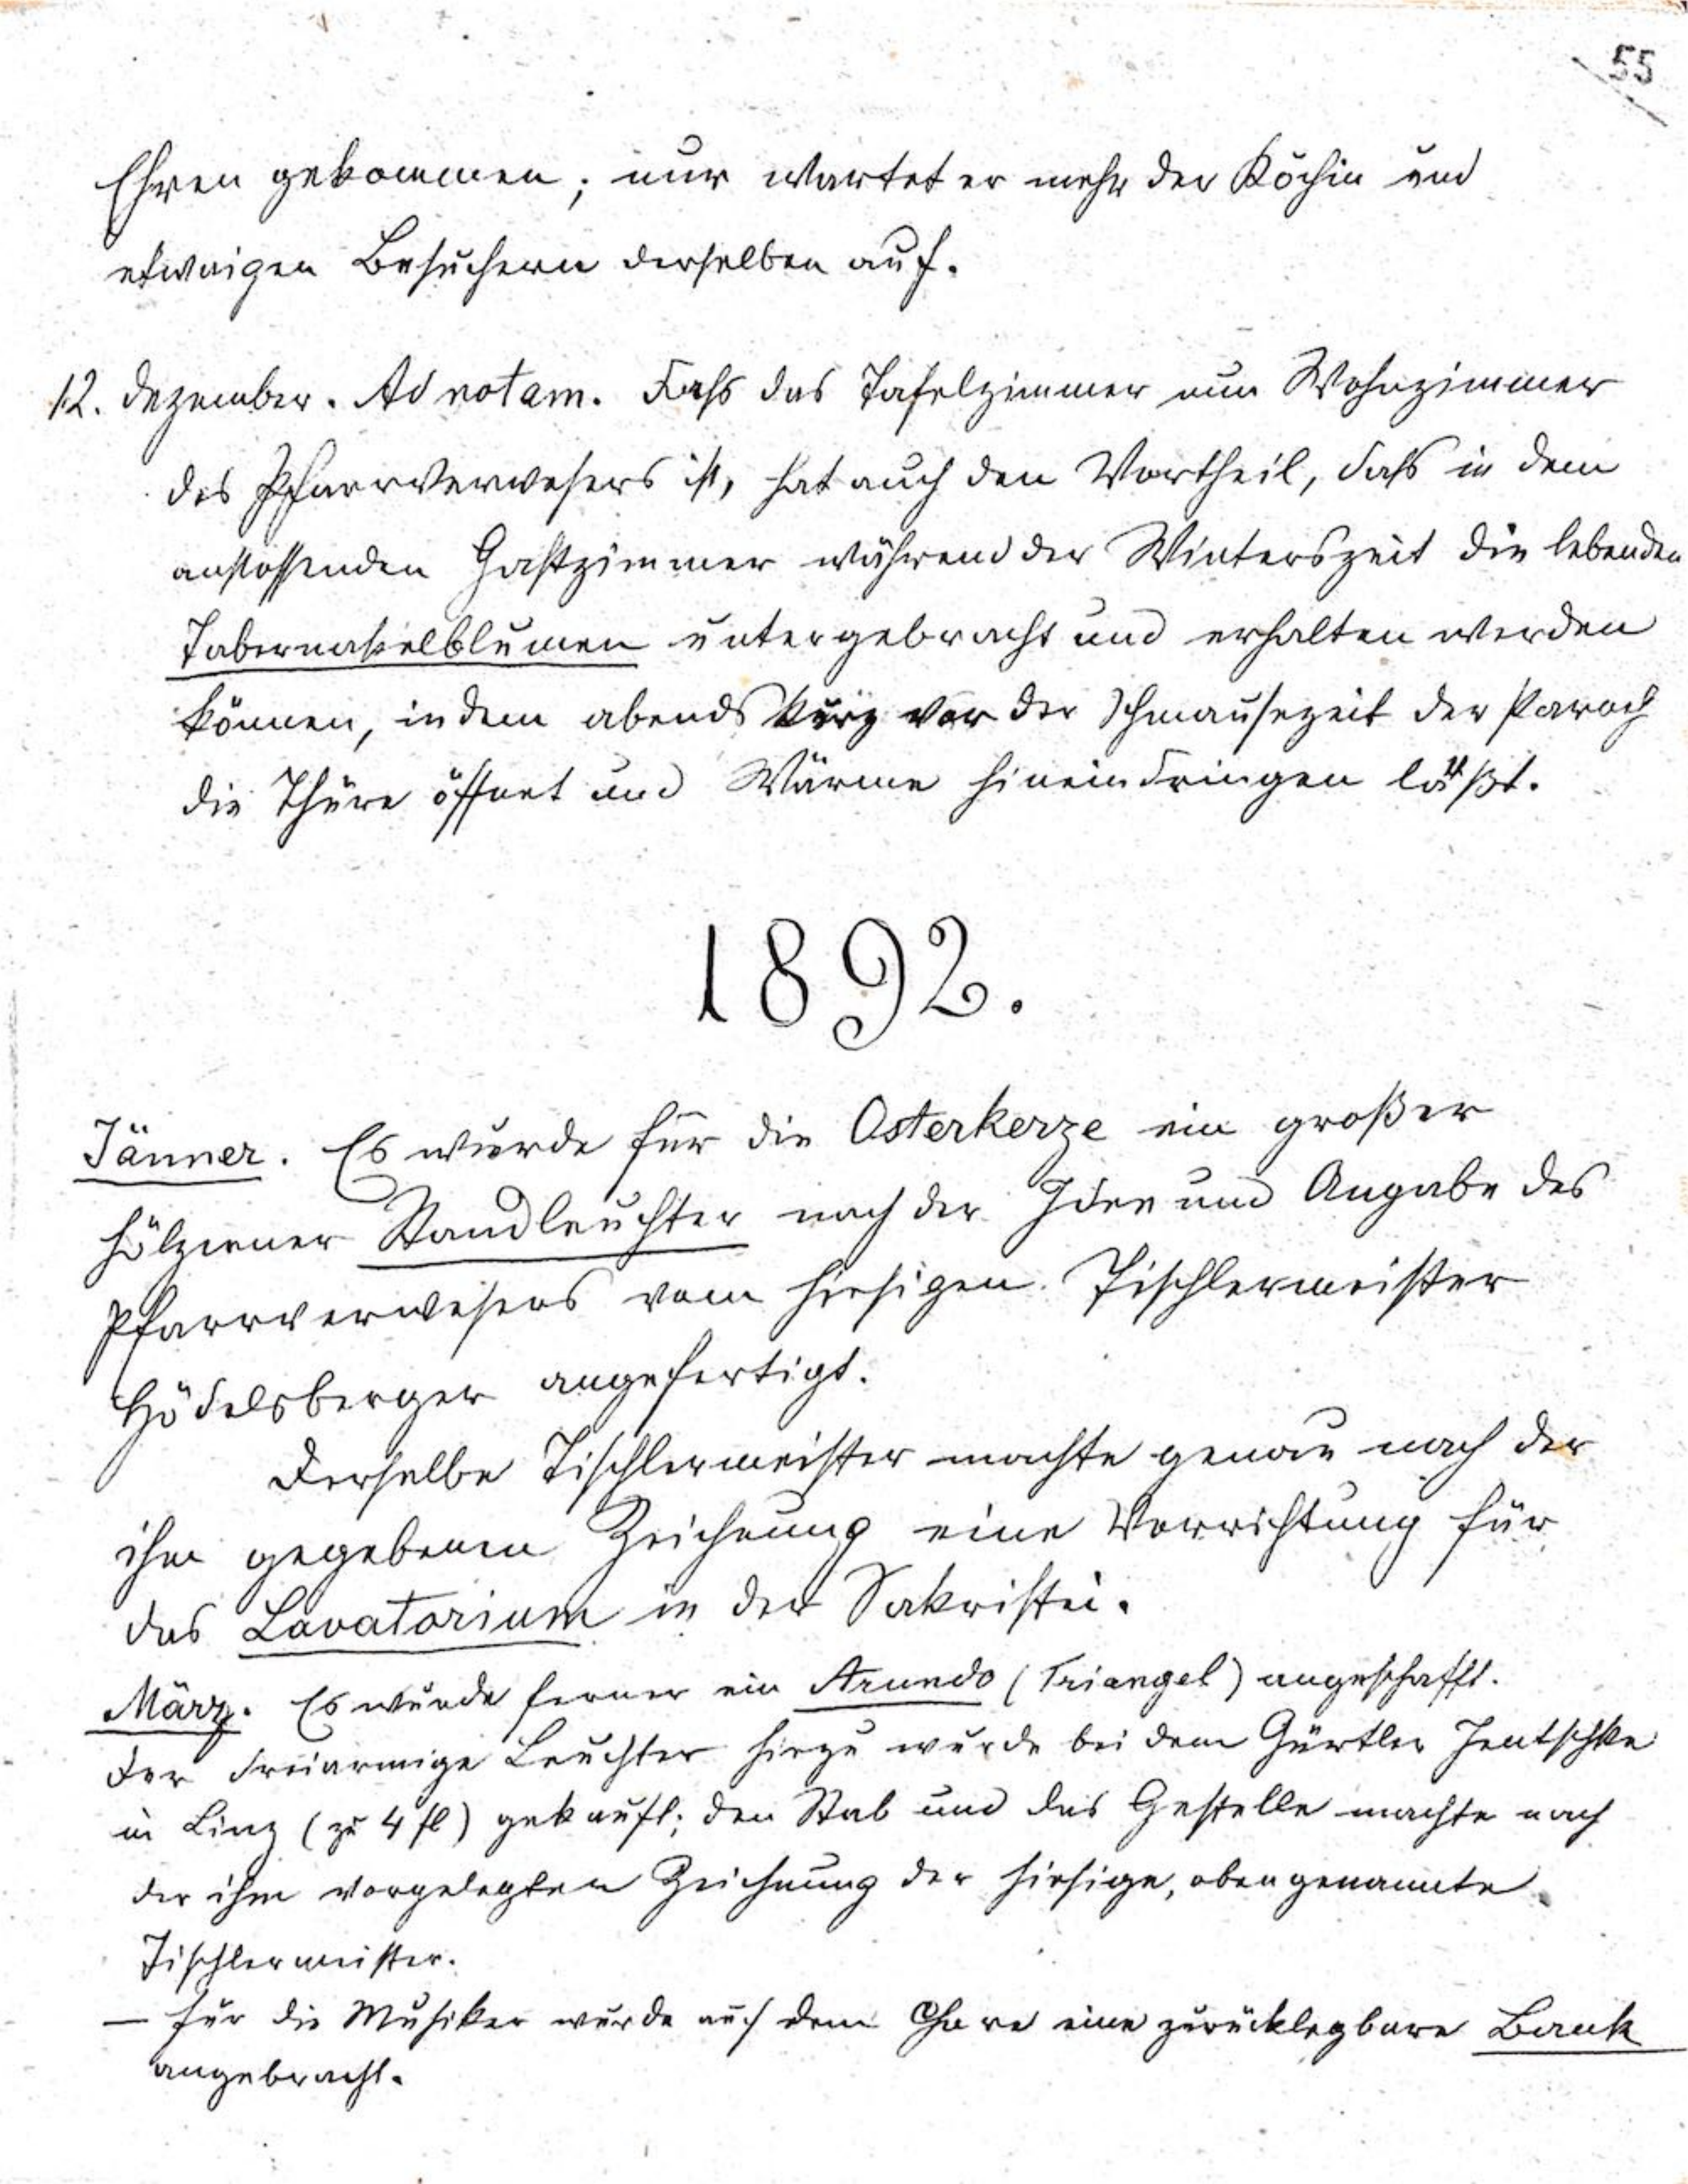 55
Ehren gekommen; nur wartet er mehr der Köchin und
etwaigen Besuchern derselben auf.
12. Dezember. Ad notam. Dass das Tafelzimmer nun Wohnzimmer
des Pfarrverwesers ist, hat auch den Vortheil, dass in dem
anstossenden Gastzimmer während der Winterszeit die lebenden
Tabernakelblumen untergebracht und erhalten werden
können, indem abends kurz vor der Schmausezeit der Paroch
die Thüre öffnet und Wärme hineindringen läßt.
1892.
Jänner. Es wurde für die Osterkerze ein großer
hölzerner Standleuchter nach der Idee und Angabe des
Pfarrverwesers vom hiesigen Tischlermeister
Hödelsberger angefertigt.
Derselbe Tischlermeister machte genau nach der
ihm gegebenen Zeichnung eine Vorrichtung für
das Lavatorium in der Sakristei.
März. Es wurde ferner ein Arundo (Triangel) angeschafft.
Der dreiarmige Leuchter hiezu wurde bei dem Gürtler Jentschke
in Linz (zu 4 fl) gekauft; den Stab und das Gestelle machte nach
der ihm vorgelegten Zeichnung der hiesige, obengenannte
Tischlermeister.
— Für die Musiker wurde auf dem Chore eine zurücklegbare Bank
angebracht.